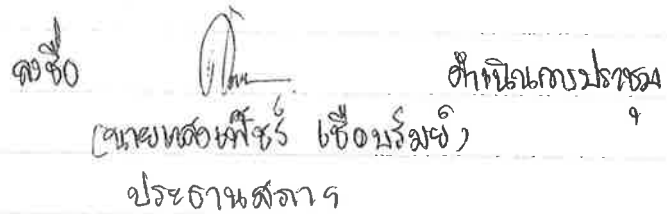 ลงชื่อ ดำเนินการประชุม
(นาย เชื้อบุรมย์)
ประธานสภาฯ